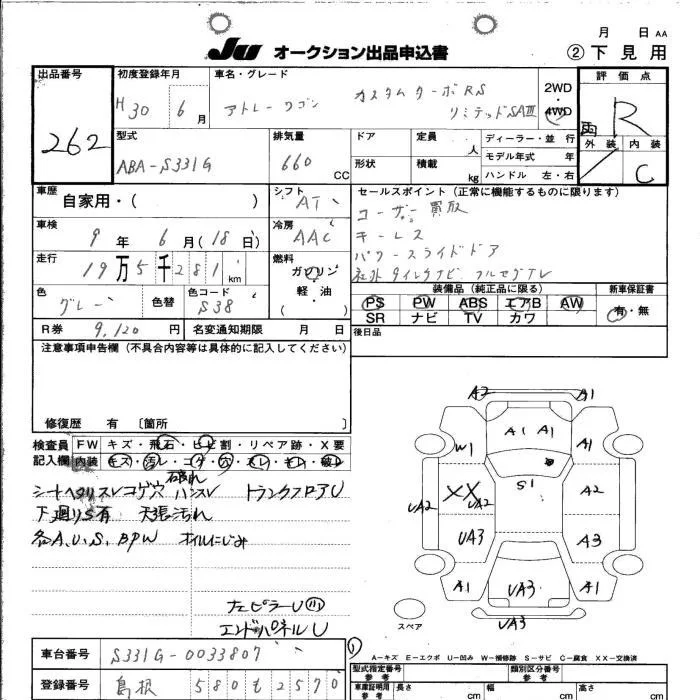 月 日 AA
JU オークション出品申込書 ②下見用
出品番号 262
初度登録年月 H30 6月
車名・グレード アトレーワゴン カスタムターボRS リミテッドSAⅢ
2WD・4WD
評価点 R
外装 内装 C
型式 ABA-S331G
排気量 660 CC
ドア 定員 人
形状 積載 kg
ディーラー・並 行
モデル年式 年
ハンドル 左・右
車歴 自家用・( )
シフト AT
車検 9年6月(18日)
冷房 AAC
走行 19万5千281km
燃料 ガソリン・軽油( )
色 グレー 色替
色コード S38
R券 9,120円 名変通知期限 月 日
セールスポイント(正常に機能するものに限ります)
ユーザー買取
キーレス
パワースライドドア
社外 ナビ フルセグTV
装備品(純正品に限る) 新車保証書
PS PW ABS エアB AW 有・無
SR ナビ TV カワ
後日品
注意事項申告欄(不具合内容等は具体的に記入してください)
修復歴 有 〔箇所 〕
検査員 FW キズ・飛石・ヒビ割・リペア跡・X要
記入欄 内装 キズ・汚レ・コゲ・穴・スレ・キレ・破レ
破れ
シートヘタリスレコゲ穴 ハンスレ トランクフロアU
下廻りS有 天張汚れ
各A.U.S.BPW オイルにじみ
ナピラーU
エンドパネルU
A2 A1
W1 A1 A1 A1
S1
UA2 XX UA2 A2
UA3 A3
A1 UA3 A1
UA3
スペア
A-キズ E-エクボ U-凹み W-補修跡 S-サビ C-腐食 XX-交換済
車台番号 S331G-0033807
登録番号 島根 580 を 2570
型式指定番号 参考 類別区分番号 参考
車庫証明用 参考 長さ cm 幅 cm 高さ cm